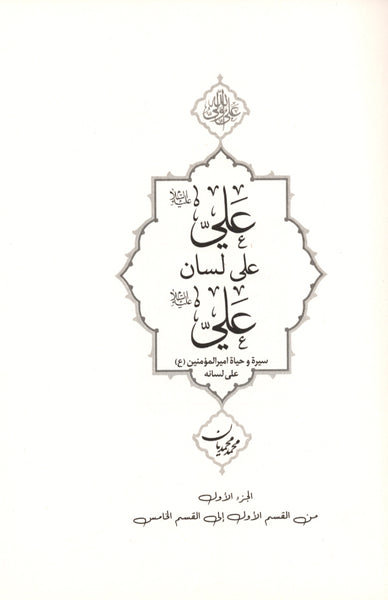 علي ولي الله
عَليٌّ عليه السلام
على لسان
عَليٌّ عليه السلام
سيرة و حياة اميرالمؤمنين (ع)
على لسانه
محمد محمديان
الجزء الأول
من القسم الأول إلى القسم الخامس